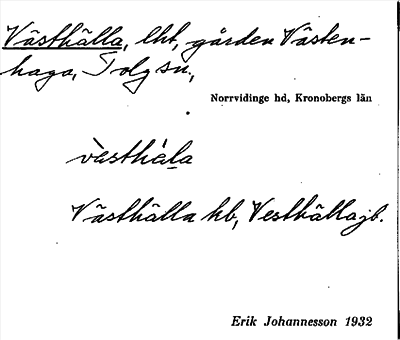 Västhälla, lht, gården Västen-
haga, Tolg sn.,
Norrvidinge hd, Kronobergs län
vàsthála
Västhälla kb, Vesthälla jb.
Erik Johannesson 1932